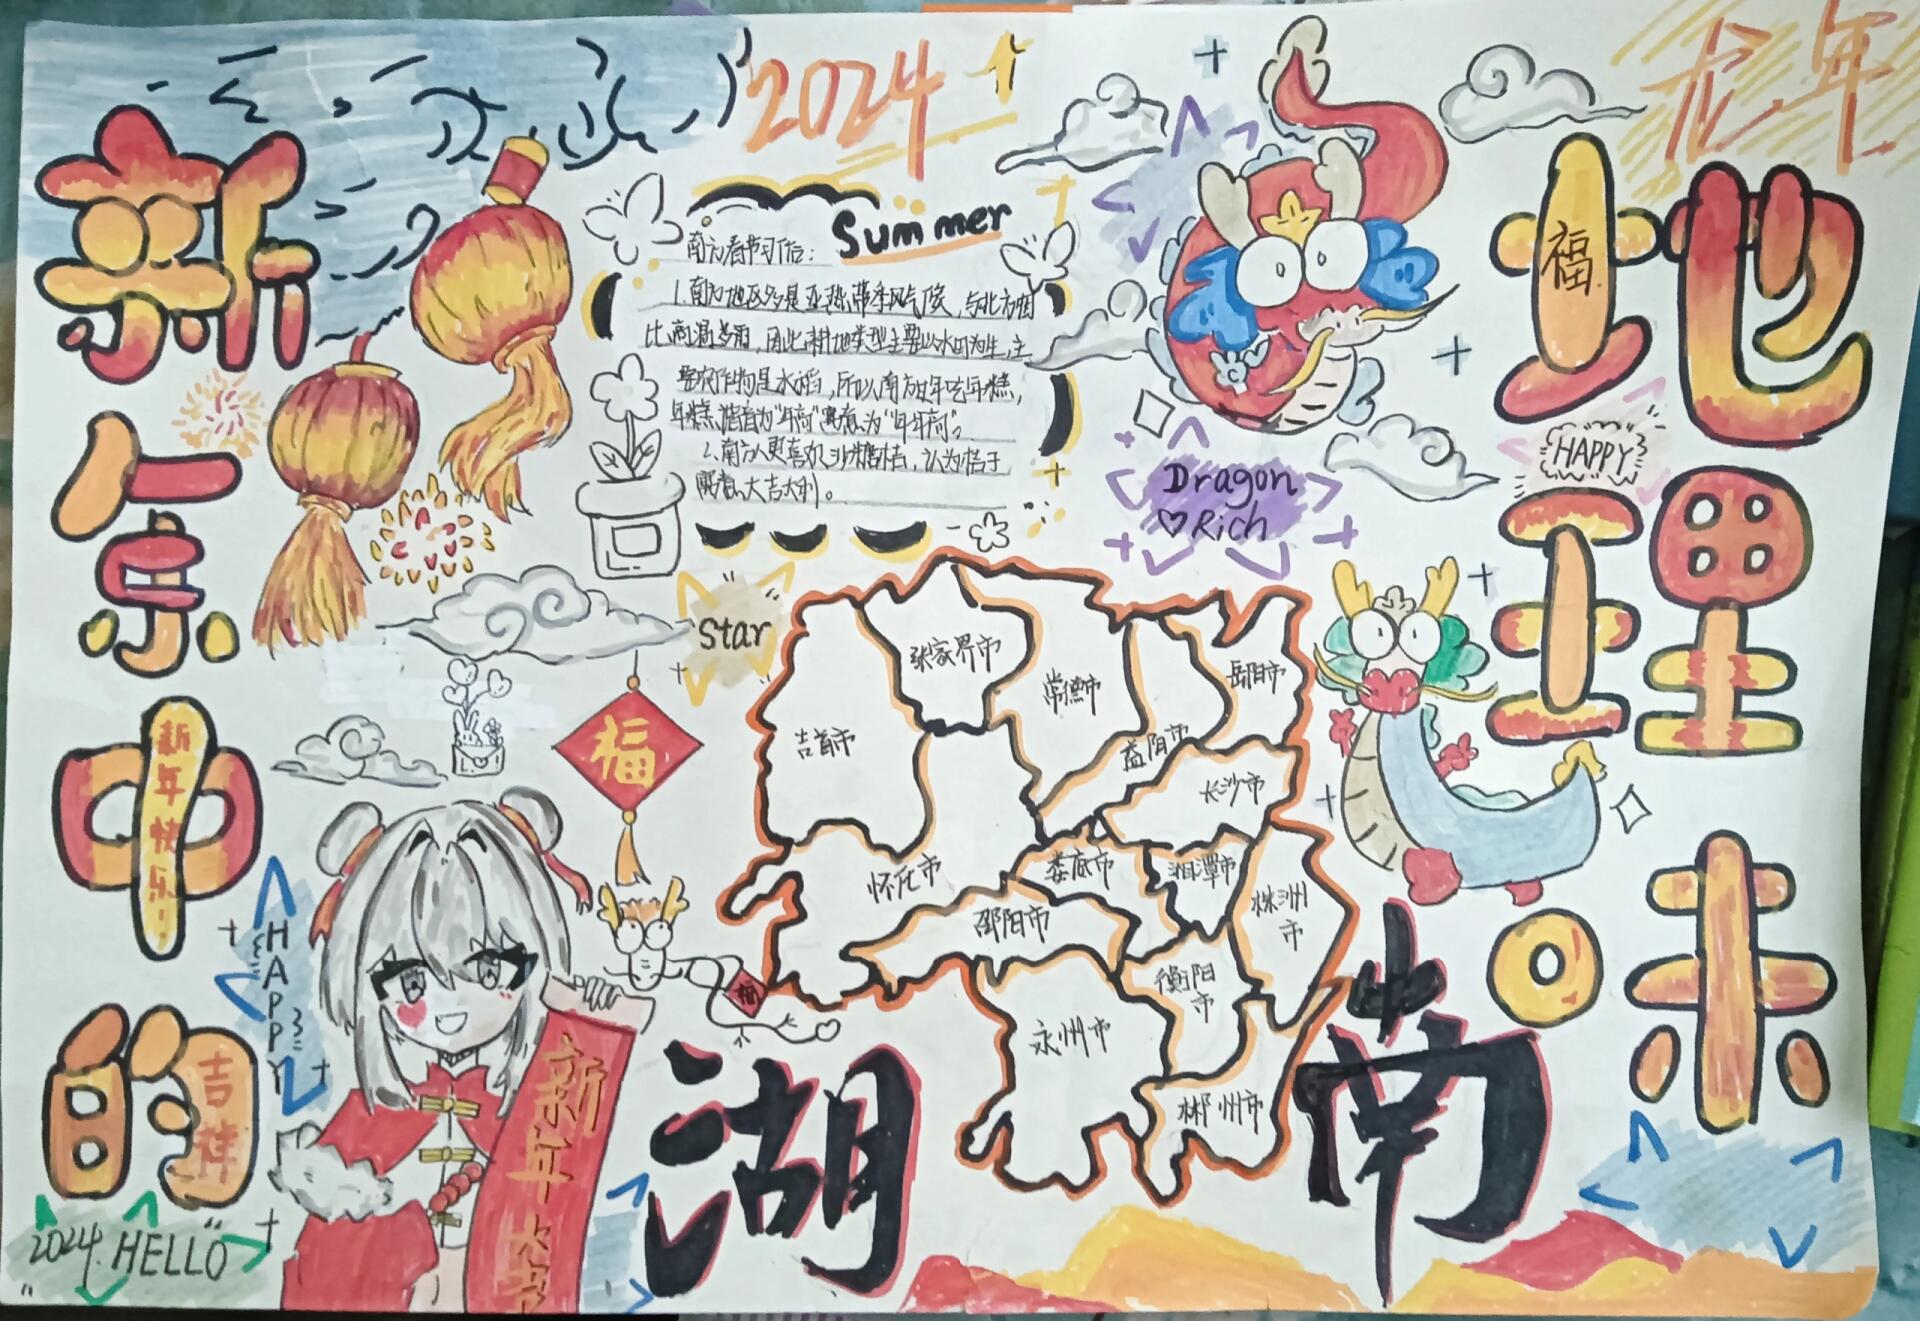 2024
龙年
新
年
中
的
新年快乐!
吉祥
地
理
味
福
Summer
南方春节习俗：
1.南方地区多是亚热带季风气候，与北方相
比高温多雨，因此耕地类型主要以水田为主，主
要农作物是水稻，所以南方过年吃年糕，
年糕谐音为“年高”寓意为“年年高”。
2.南方人更喜欢沙糖桔，认为桔子
寓意大吉大利。
Dragon
Rich
HAPPY
Star
福
张家界市
常德市
岳阳市
吉首市
益阳市
长沙市
怀化市
娄底市
湘潭市
株洲市
邵阳市
衡阳市
永州市
郴州市
HAPPY
福
新年
湖
南
2024.HELLO